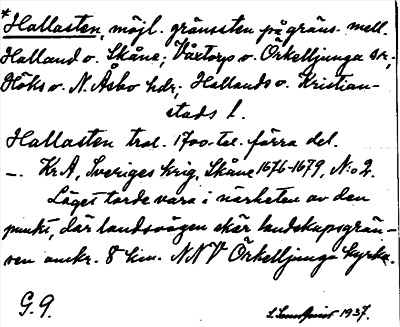 *Hallasten, möjl. gränssten på gräns. mell.
Halland o. Skåne; Våxtorps o. Örkelljunga snr,
Höks o. N. Åsbo hdr; Hallands o. Kristian-
stads l.
Hallasten trol. 1700-tal. förra del.
–. KrA, Sveriges krig, Skåne 1676-1679, N:o 2.
Läget torde vara i närheten av den
punkt, där landsvägen skär landskapsgrän-
sen omkr. 8 km. NNV Örkelljunga kyrka.
G. 9.
1937.